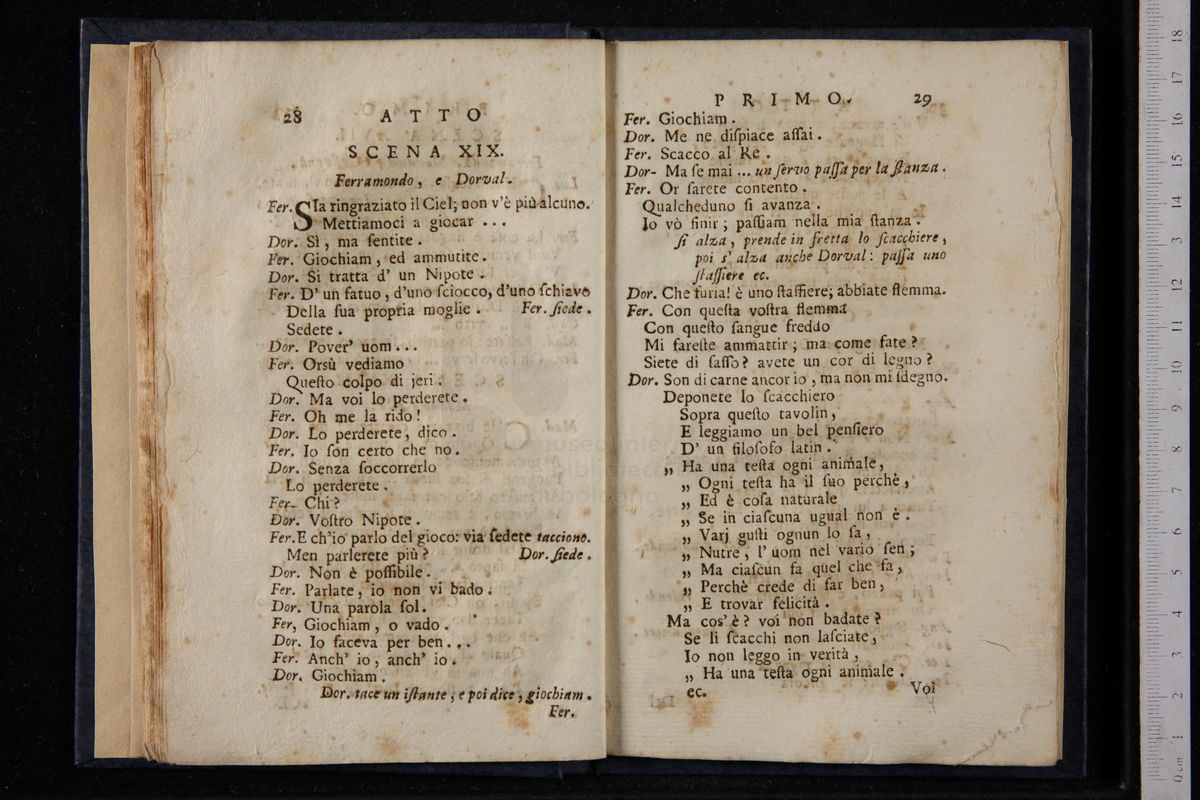 28 ATTO
SCENA XIX.
Ferramondo, e Dorval.
Fer. SIa ringraziato il Ciel; non v'è più alcuno.
Mettiamoci a giocar ...
Dor. Sì, ma ſentite.
Fer. Giochiam, ed ammutite.
Dor. Si tratta d' un Nipote.
Fer. D' un fatuo, d'uno ſciocco, d'uno ſchiavo
Della ſua propria moglie. Fer. ſiede.
Sedete.
Dor. Pover' uom...
Fer. Orsù vediamo
Queſto colpo di jeri.
Dor. Ma voi lo perderete.
Fer. Oh me la rido!
Dor. Lo perderete, dico.
Fer. Io ſon certo che no.
Dor. Senza ſoccorrerlo
Lo perderete.
Fer. Chi?
Dor. Voſtro Nipote.
Fer. E ch'io parlo del gioco: via ſedete tacciono.
Men parlerete più? Dor. ſiede.
Dor. Non è poſſibile.
Fer. Parlate, io non vi bado.
Dor. Una parola ſol.
Fer, Giochiam, o vado.
Dor. Io faceva per ben...
Fer. Anch' io, anch' io.
Dor. Giochiam.
Dor. tace un iſtante, e poi dice, giochiam.
Fer.
PRIMO. 29
Fer. Giochiam.
Dor. Me ne diſpiace aſſai.
Fer. Scacco al Re.
Dor- Ma ſe mai ... un ſervo paſſa per la ſtanza.
Fer. Or ſarete contento.
Qualcheduno ſi avanza.
Io vò finir; paſſiam nella mia ſtanza.
ſi alza, prende in fretta lo ſcacchiere,
poi s' alza anche Dorval: paſſa uno
ſtaffiere ec.
Dor. Che furia! è uno ſtaffiere; abbiate flemma.
Fer. Con queſta voſtra flemma
Con queſto ſangue freddo
Mi fareſte ammattir; ma come fate?
Siete di ſaſſo? avete un cor di legno?
Dor. Son di carne ancor io, ma non mi ſdegno.
Deponete lo ſcacchiero
Sopra queſto tavolin,
E leggiamo un bel penſiero
D' un filoſofo latin.
„ Ha una teſta ogni animale,
„ Ogni teſta ha il ſuo perchè,
„ Ed è coſa naturale
„ Se in ciaſcuna ugual non è.
„ Varj guſti ognun lo ſa,
„ Nutre, l' uom nel vario ſen;
„ Ma ciaſcun fa quel che fa,
„ Perchè crede di far ben,
„ E trovar felicità.
Ma cos' è? voi non badate?
Se li ſcacchi non laſciate,
Io non leggo in verità,
„ Ha una teſta ogni animale.
ec. Voi
0 cm 1 2 3 4 5 6 7 8 9 10 11 12 13 14 15 16 17 18